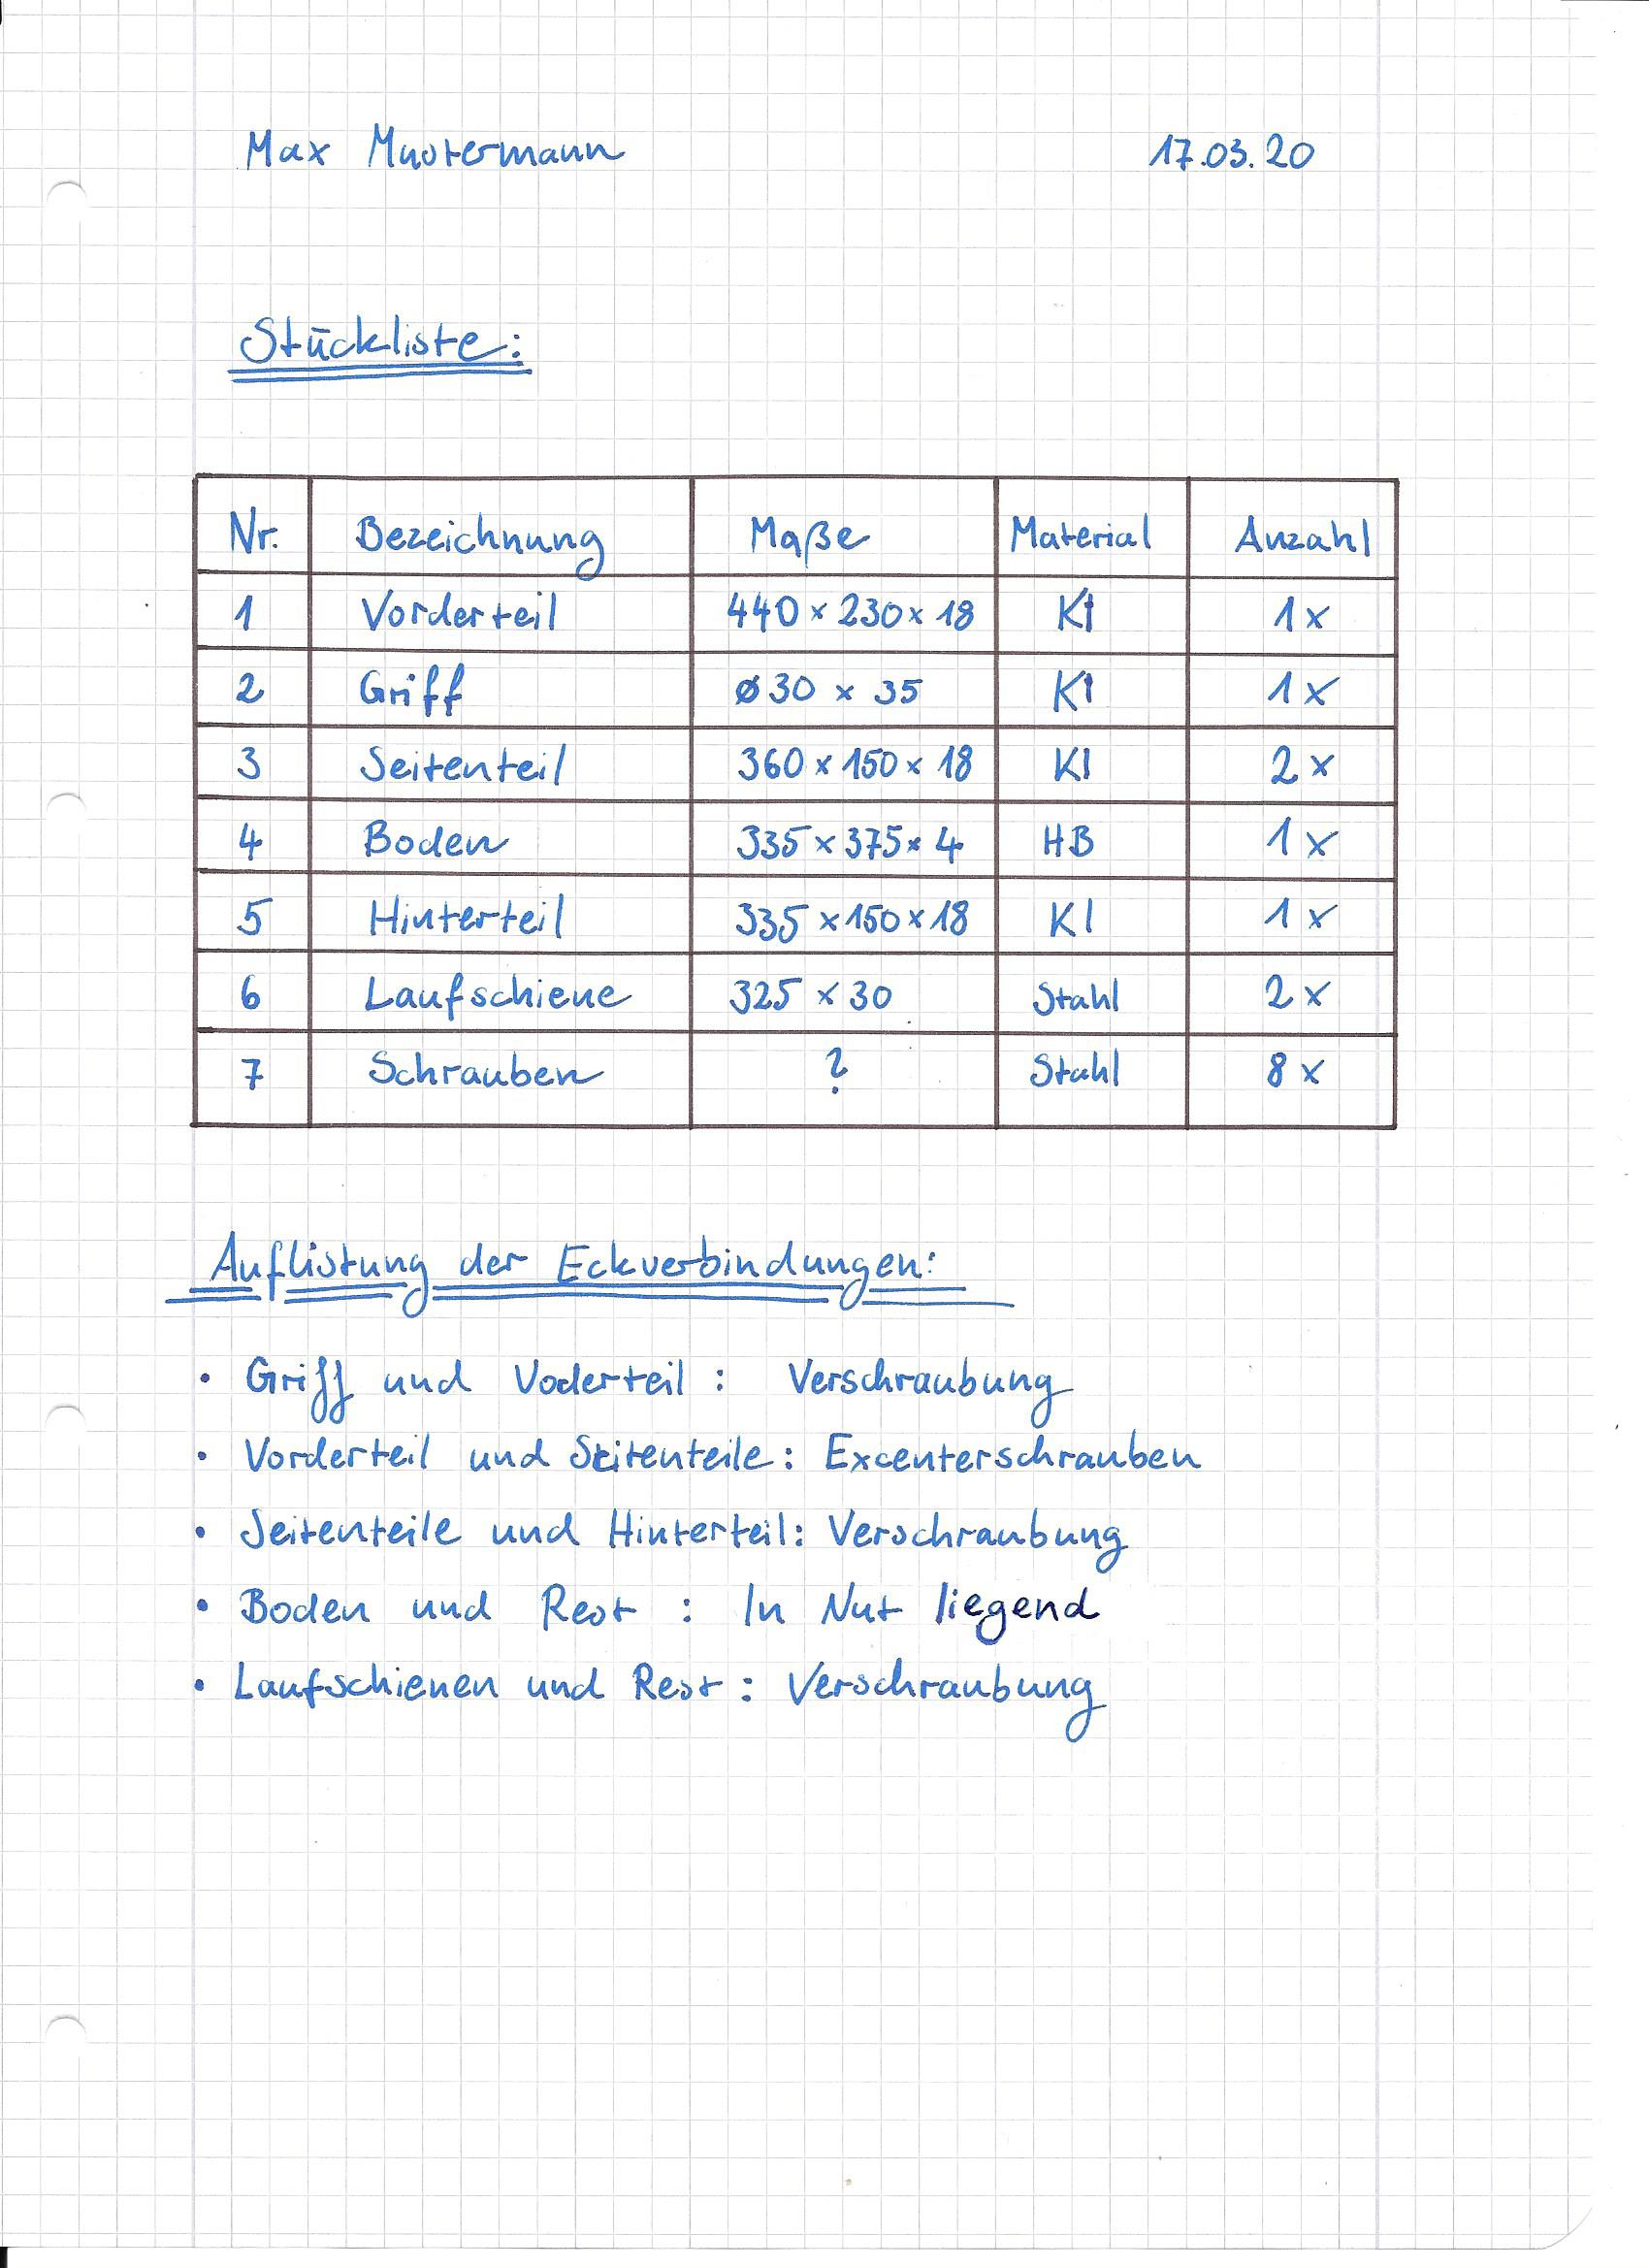 Max Mustermann 17.03.20
Stückliste:
Nr. Bezeichnung Maße Material Anzahl
1 Vorderteil 440 x 230 x 18 KI 1x
2 Griff ø 30 x 35 KI 1x
3 Seitenteil 360 x 150 x 18 KI 2x
4 Boden 335 x 375 x 4 HB 1x
5 Hinterteil 335 x 150 x 18 KI 1x
6 Laufschiene 325 x 30 Stahl 2x
7 Schrauben ? Stahl 8x
Auflistung der Eckverbindungen:
• Griff und Voderteil : Verschraubung
• Vorderteil und Seitenteile: Excenterschrauben
• Seitenteile und Hinterteil: Verschraubung
• Boden und Rest : In Nut liegend
• Laufschienen und Rest : Verschraubung